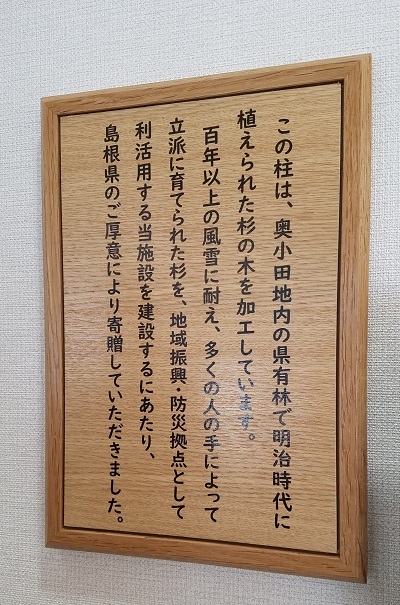 この柱は、奥小田地内の県有林で明治時代に
植えられた杉の木を加工しています。
百年以上の風雪に耐え、多くの人の手によって
立派に育てられた杉を、地域振興・防災拠点として
利活用する当施設を建設するにあたり、
島根県のご厚意により寄贈していただきました。